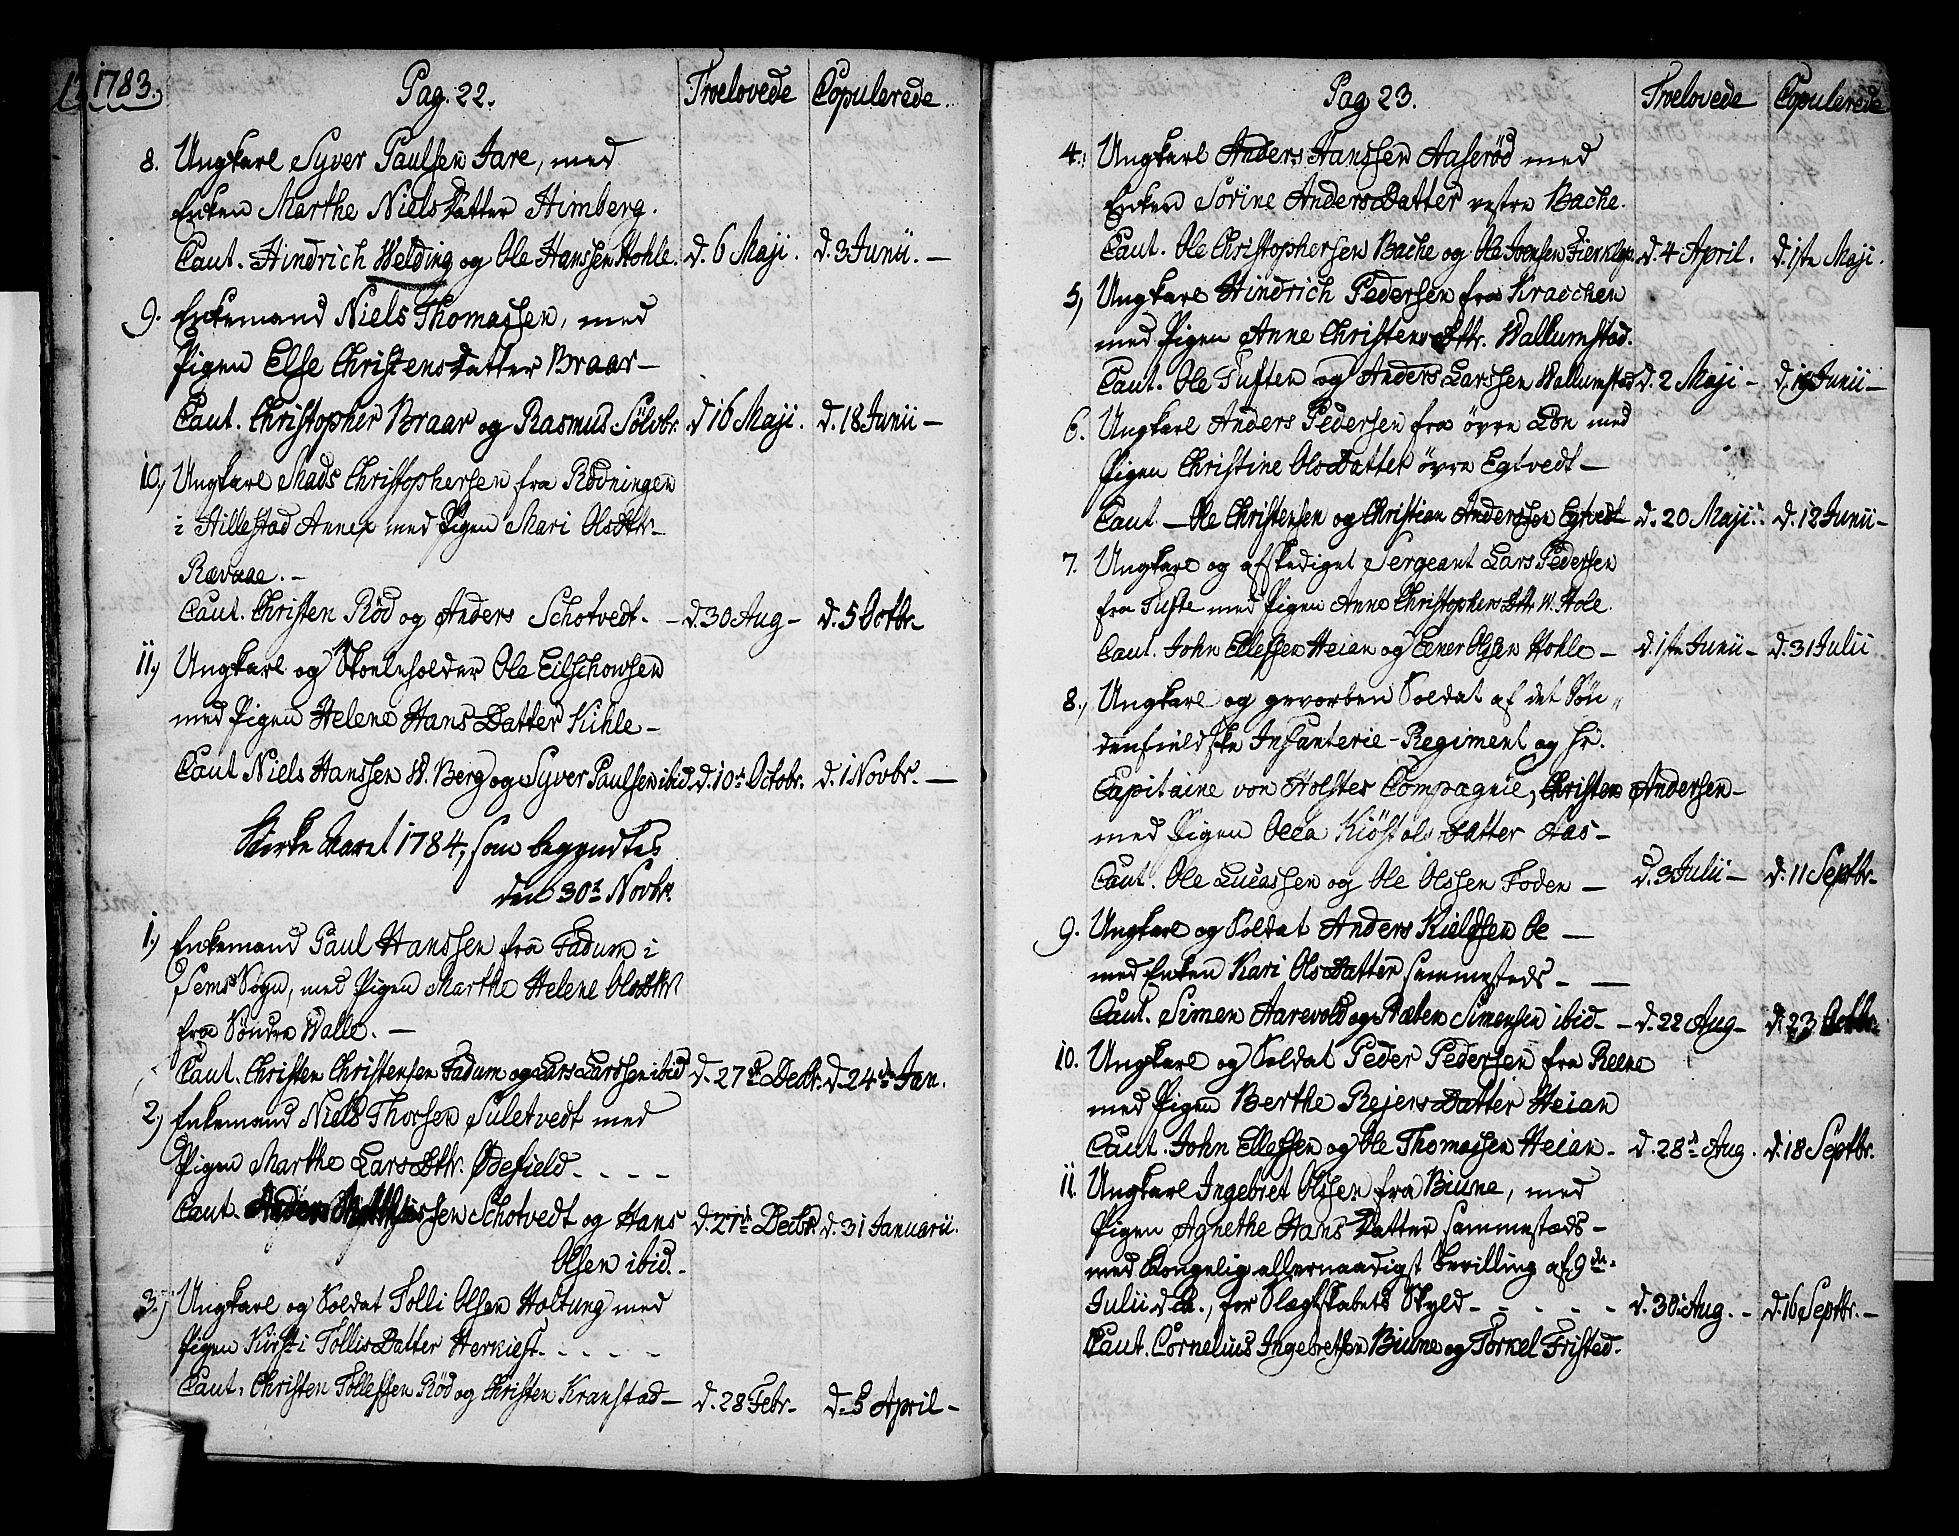 1783.
Pag. 22.
Troelovede
Copulerede.
8. Ungkarl Syver Paulsen Jare, med
Enken Marthe NielsDatter Himberg.
Caut. Hindrich Welding og Ole Hanssen Hohle. d. 6 Maji. d. 3 Junii. —
9. Enkemand Niels Thomassen, med
Pigen Else ChristensDatter Braar —
Caut. Christopher Braar og Rasmus Sölvbr. d. 16 Maji. d. 18 Junii —
10, Ungkarl Mads Christophersen fra Rödningen
i Hillestad Annex med Pigen Mari OlsDttr —
Rævaae. —
Caut. Christen Röd og Anders Schotvedt. — d. 30 Aug — d. 5 Octbr. —
11, Ungkarl og Skoeleholder Ole Eilschowsen
med Pigen Helene HansDatter Kihle —
Caut Niels Hanssen W. Berg og Syver Paulsen ibid. d. 10de Octobr. d. 1 Novbr. —
Kirke Aaret 1784, som begyndtes
den 30te Novbr.
1, Enkemand Paul Hanssen fra Fadum i
Sems Sogn, med Pigen Marthe Helene OlsDttr
fra Söndre Walle. —
Caut. Christen Christensen Fadum og Lars Larssen ibid d. 27de Decbr. d. 24de Jan.
2, Enkemand Niels Thorsen Suletvedt med
Pigen Marthe LarsDttr. Ødefield. - - - -
Caut. Anders Matthissen Schotvedt og Hans d. 27de Decbr. d. 31 Januarii.
Olsen ibid. -
3, Ungkarl og Soldat Tolli Olsen Holtung med
Pigen Kirsti TollisDatter Herkiest. - - - -
Caut. Christen Tollefsen Röd og Christen Kranstad — d. 28 Febr. — d. 5 April —
Pag 23.
Troelovede
Copulerede
4. Ungkarl Anders Hanssen Aaseröd med
Enken Sorine AndersDatter vestre Bache.
Caut. Ole Christophersen Bache og Ole Iversen d. 4 April. d. 1ste Maji.
5, Ungkarl Hindrich Pedersen fra Kraschen
med Pigen Anne ChristensDttr. Wallumstad.
Caut. Ole Tuften og Anders Larssen Wallumstad d. 2 Maji — d. Junii —
6. Ungkarl Anders Pedersen fra övre Lön med
Pigen Christine OlsDatter övre Egtvedt —
Caut — Ole Christensen og Christian Anderssen Egtvedt — d. 20 Maji. d. 12 Junii —
7. Ungkarl og afskediget Sergeant Lars Pedersen
fra Tufte med Pigen Anne ChristophersDttr W. Hole.
Caut. John Ellefsen Heian og Eener Olsen Hohle — d. 1ste Junii — d. 31 Julii
8, Ungkarl og gevorben Soldat af det Sön„
denfieldske Infanterie-Regiment og Hr.
Capitaine von Holstes Compagnie, Christen Andersen —
med Pigen Olea KiöstolsDatter Aas —
Caut. Ole Lucassen og Ole Olssen Foden — d. 3 Julii — d. 11 Septbr —
9. Ungkarl og Soldat Anders Kieldsen Oe —
med Enken Kari OlsDatter sammesteds — —
Caut. Simen Aarevold og Næben Simensen ibid — — d. 22 Aug — d. 23 Octbr.
10. Ungkarl og Soldat Peder Pedersen fra Reene
med Pigen Berthe RejersDatter Heian
Caut. John Ellefsen og Ole Thomassen Heian — d. 28de Aug. d. 18 Septbr.
11. Ungkarl Ingebret Olssen fra Biune, med
Pigen Agnethe HansDatter sammestæds —
med Kongelig allernaadigst Bevilling af 9de
Julii d. A., for Slægtskabets Skyld - - - - - d. 30 Aug. — d. 16 Septbr. —
Caut. Cornelius Ingebretsen Biune og Torkel Fristad.